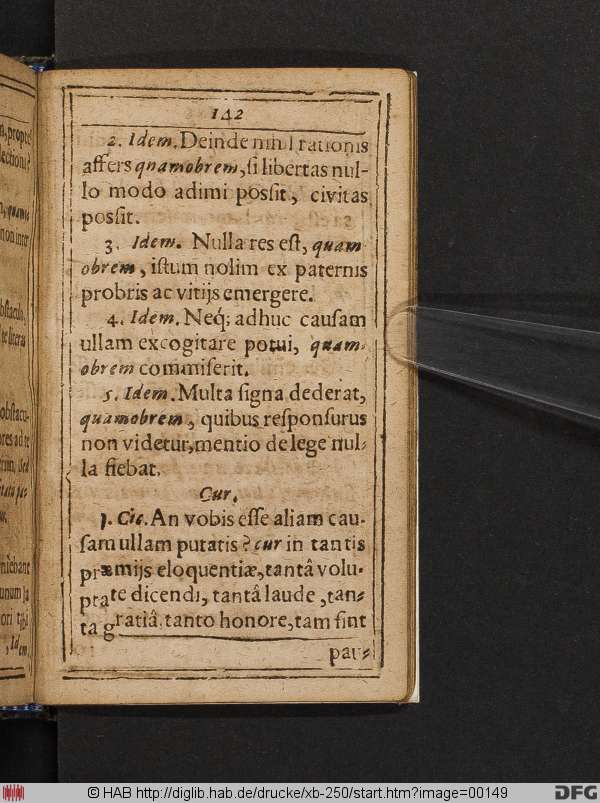 142
2. Idem. Deinde nihil rationis
affers quamobrem, si libertas nul-
lo modo adimi possit, civitas
possit.
3. Idem. Nulla res est, quam
obrem, istum nolim ex paternis
probris ac vitijs emergere.
4. Idem. Neq; adhuc causam
ullam excogitare potui, quam-
obrem commiserit.
5. Idem. Multa signa dederat,
quamobrem, quibus responsurus
non videtur, mentio de lege nul-
la fiebat.
Cur.
1. Cic. An vobis esse aliam cau-
sam ullam putatis? cur in tantis
præmijs eloquentiæ, tantâ volu-
ptate dicendi, tantâ laude, tan-
ta gratiâ. tanto honore, tam sint
pau-
© HAB http://diglib.hab.de/drucke/xb-250/start.htm?image=00149
DFG